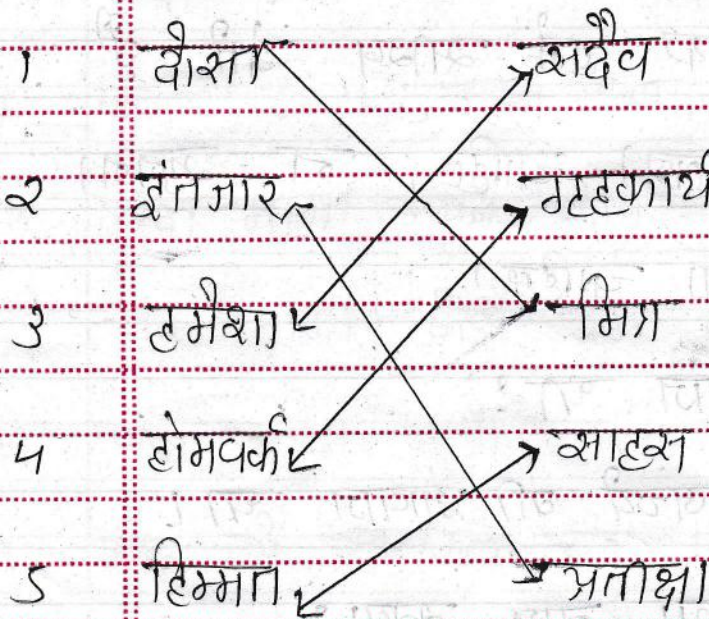 १ दोस्त सदैव
२ इंतजार गृहकार्य
३ हमेशा मित्र
४ होमवर्क साहस
५ हिम्मत प्रतीक्षा